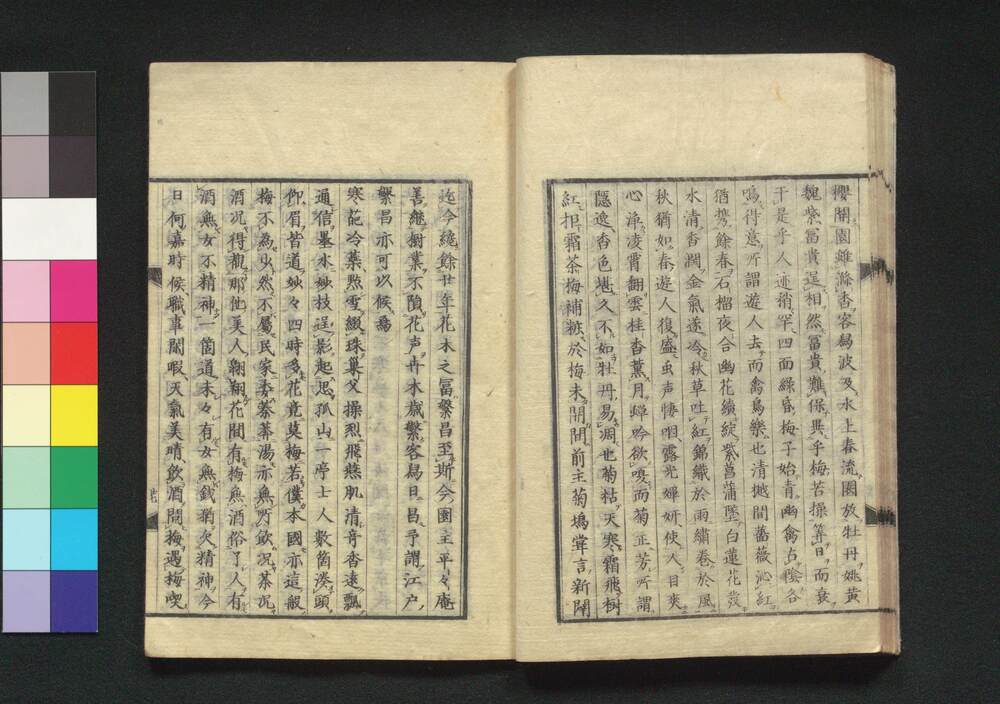 櫻闌園雖滌香客易波及水上春流園放牡丹姚黄
魏紫冨貴逞相然冨貴難保異乎梅苦操算日而衰
于是乎人迹稍罕四面緑昏梅子始青幽禽占陰各
鳴得意所謂遊人去而禽鳥樂也清樾間薔薇沁紅
猶携餘春石榴夜合幽花續綻紫菖蒲墜白蓮花發
水清香潤金氣遂冷秋草吐紅錦織於雨繡卷於風
秋猶如春遊人復盛虫声悽咽露光嬋妍使人目爽
心浄凌霄翻雲桂香薫月蟀吟欲嗄而菊正芳所謂
隠逸香色甚久不如牡丹易凋也菊粘天寒霜飛樹
紅拒霜茶梅補粧於梅未開間前主菊塢甞言新闢
迄今纔餘廿年花木之冨繁昌至斯今園主平々庵
善継樹業不隕花声卉木歳繁客昜日昌予謂江户
繁昌亦可以候焉
寒葩冷蘂㸃雪綴珠巢父操烈飛燕肌清音香遠飄
通信墨水妙枝逞影起思孤山一亭士人數箇湊頭
仰眉皆道妙々四時多花竟莫梅若僕本國亦這般
梅不為少然不屬民家麥蓁蓁湯亦無所飲况茶况
酒况得龍那他美人翱翔花間有梅無酒俗了人有
酒無女不精神一箇道未々有女無錢猶欠精神今
日何嘉時候職事閒暇天氣美晴飲酒閲梅遇梅喫